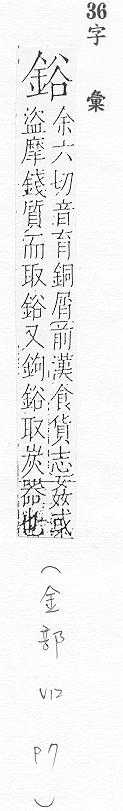 36
字彙
鋊
余六切音育銅屑前漢食貨志姦或
盜摩錢質而取鋊又鉤鋊取炭器也
(金部 V12 P7)